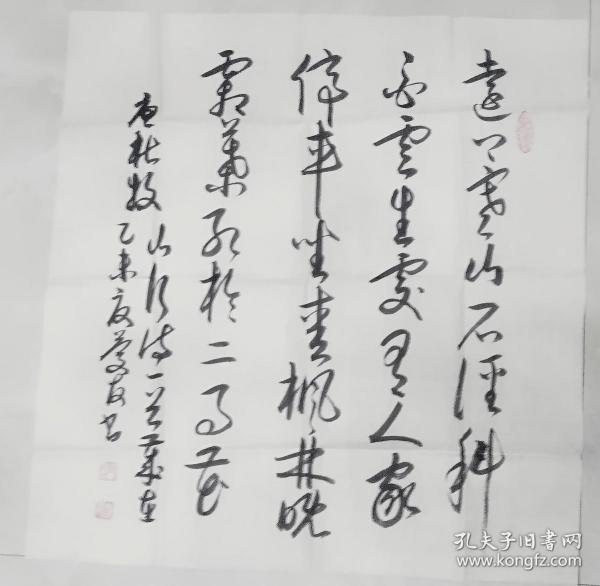 遠上寒山石徑斜
白雲生處有人家
停車坐愛楓林晚
霜葉紅於二月花
唐杜牧山行詩一首歲在
乙未夏書
孔夫子旧书网
www.kongfz.com